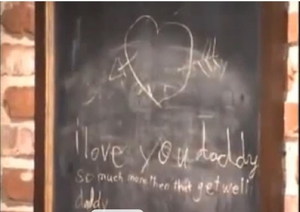 i love you daddy
so much more then that get well
daddy